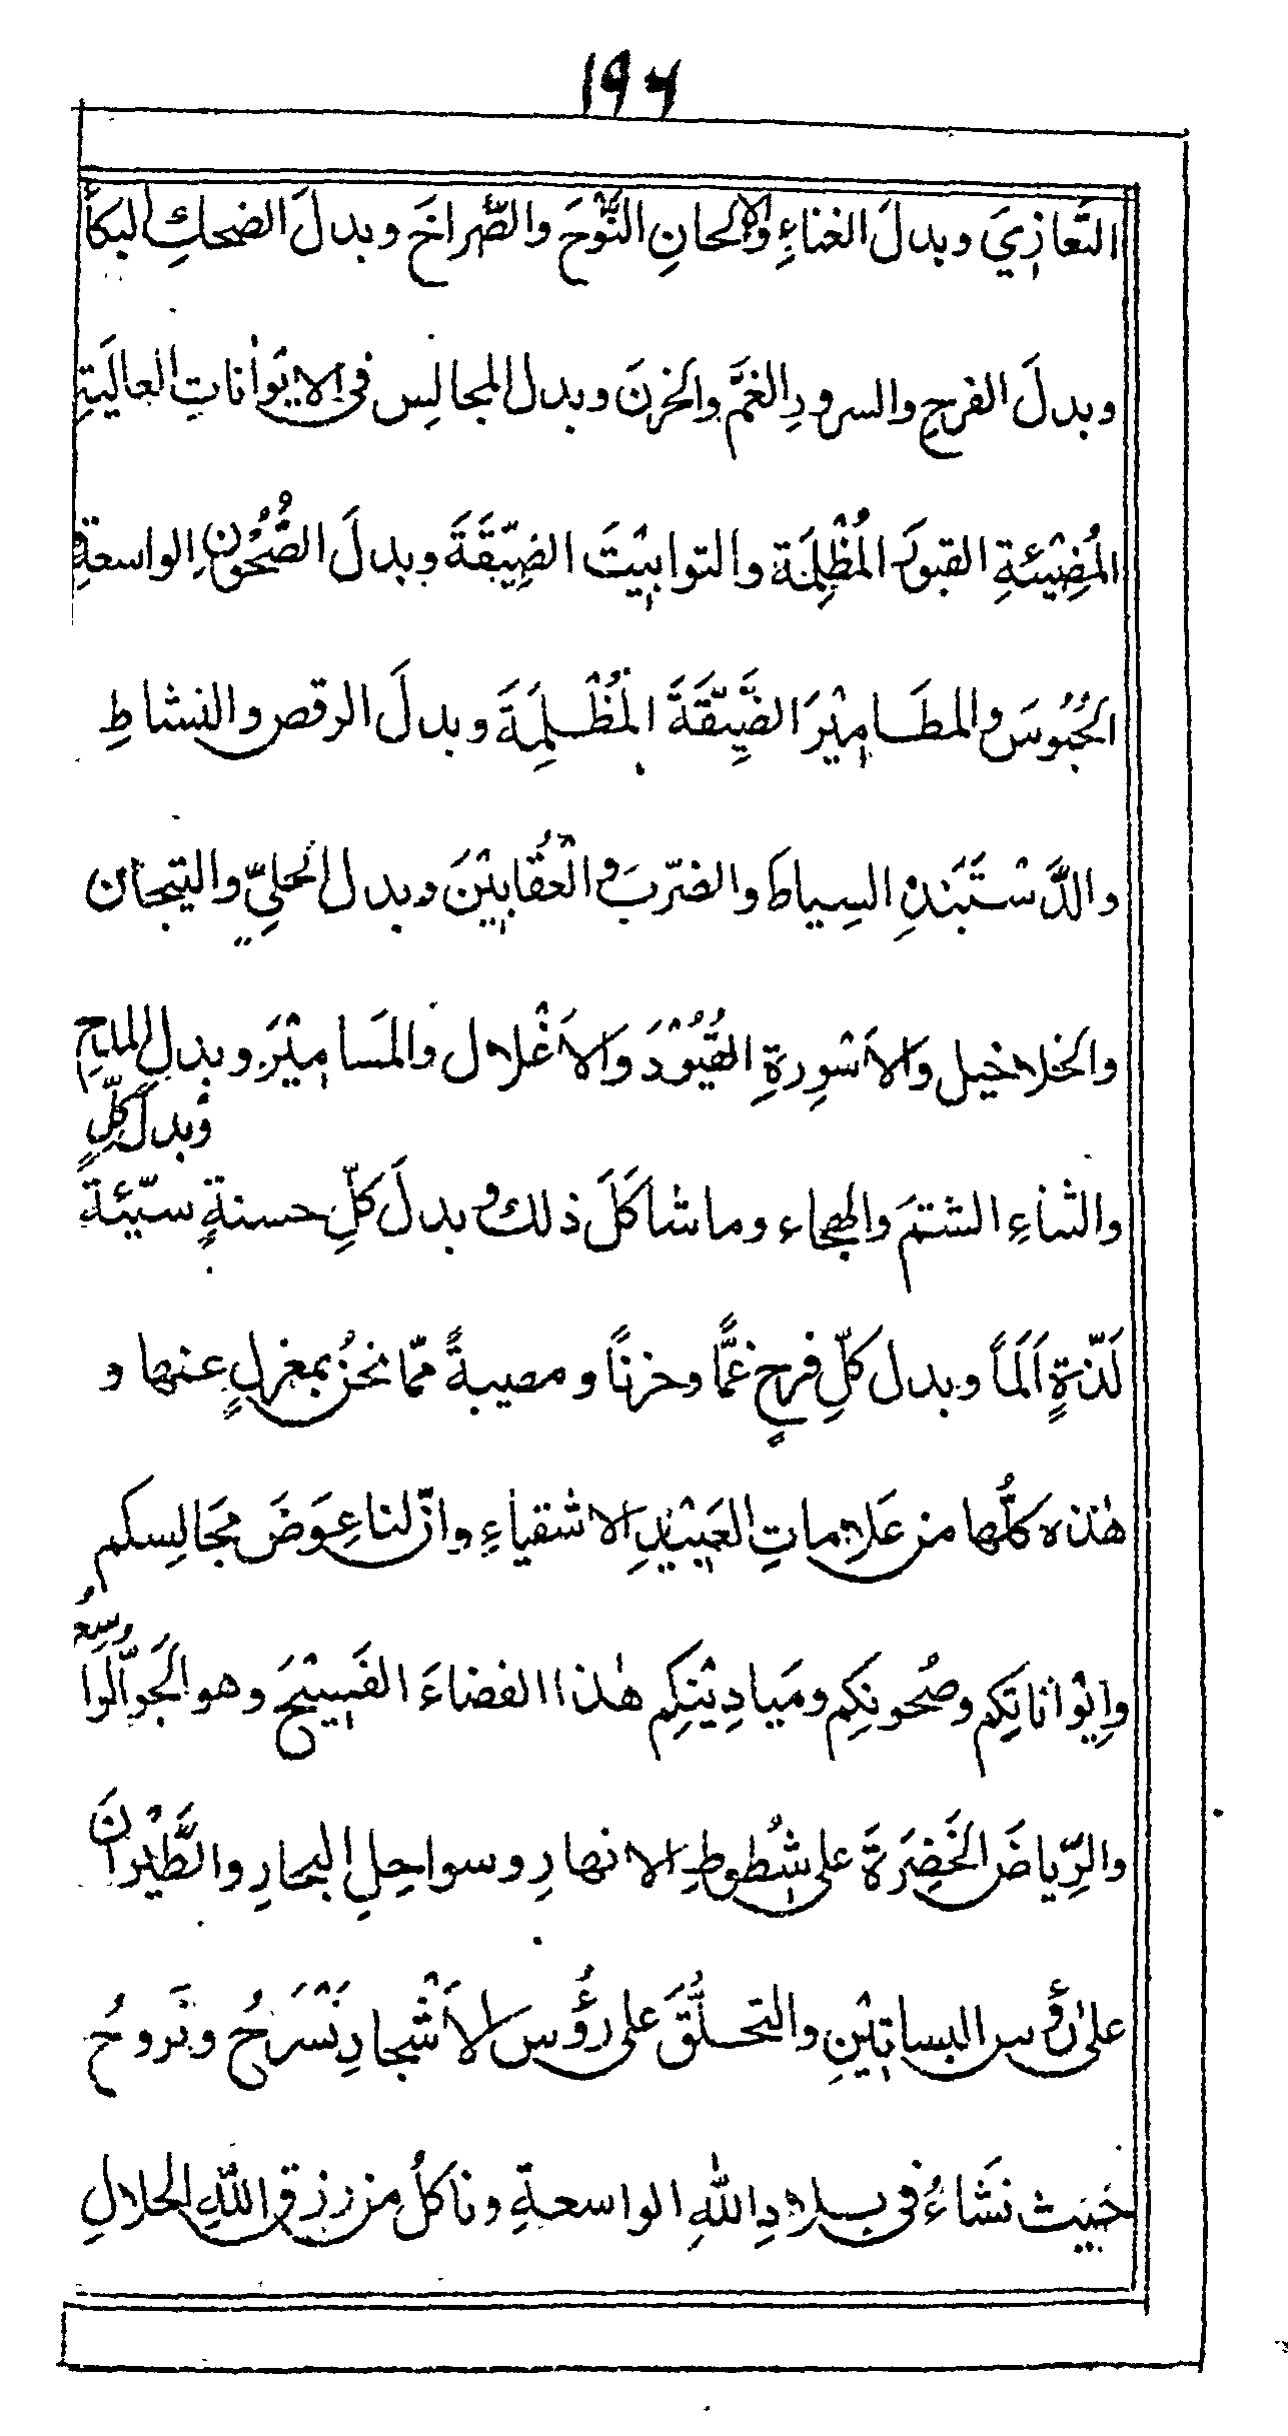 ۱۹۶
التَّعازِيَ وبدلَ الغناءِ والالحانِ النَّوْحَ والصُّراخَ وبدلَ الضحكِ البكأَ
وبدلَ الفرحِ والسرورِ الغمَّ والحزنَ وبدل المجالِس فى الايْواناتِ العاليَةِ
المُضِيْئةِ القبورَ المُظْلِمَةَ والتوابيْتَ الضِيّقَةَ وبدلَ الصُّحُوْنِ الواسعةِ
الحُبُوُسَ والمطَامِيْرَ الضَّيِّقَةَ المُظْلِمَةَ وبدلَ الرقص والنشاطِ
والدَّسْتَبَنْدِ السِياطَ والضّربَ والْعُقَابِيْنَ وبدل الحليِّ والتيجان
والخلاخيل والاَسْوِرةِ القُيُوْدَ وَالاَغْلال والمَسامِيْرَ وبدل المدحِ
والثناءِ الشتمَ والهجاء وما شاكَلَ ذلك وبدلَ كلِّ حسنةٍ سيّئةً وبدلَ كلِّ
لَذّةٍ اَلَماً وبدل كلِّ فرحٍ غمًّا وحزنًا ومصيبةً ممّا نحنُ بمعزلٍ عنها و
هٰذه كلُّها من عَلاماتِ العَبِيْدِ الاشقياءِ وانّ لنا عِوَضَ مَجَالِسكم
وايْواناتِكم وصُحونِكم ومَيادِيْنِكم هٰذا الفضاءَ الفَسِيْحَ وهو الجَوَّ الواسعُ
والرِّياضَ الخَضِرَةَ على شُطوطِ الانهارِ وسواحِلِ البحارِ والطَّيْرانَ
علىٰ رؤُس البساتِيْنِ والتحلُّقَ على رؤُس الاَشْجارِ نَسْرَحُ ونَروحُ
حَيث نَشَاءُ فى بلادِ اللهِ الواسعةِ وناكلُ مِن رزق اللهِ الحلالِ